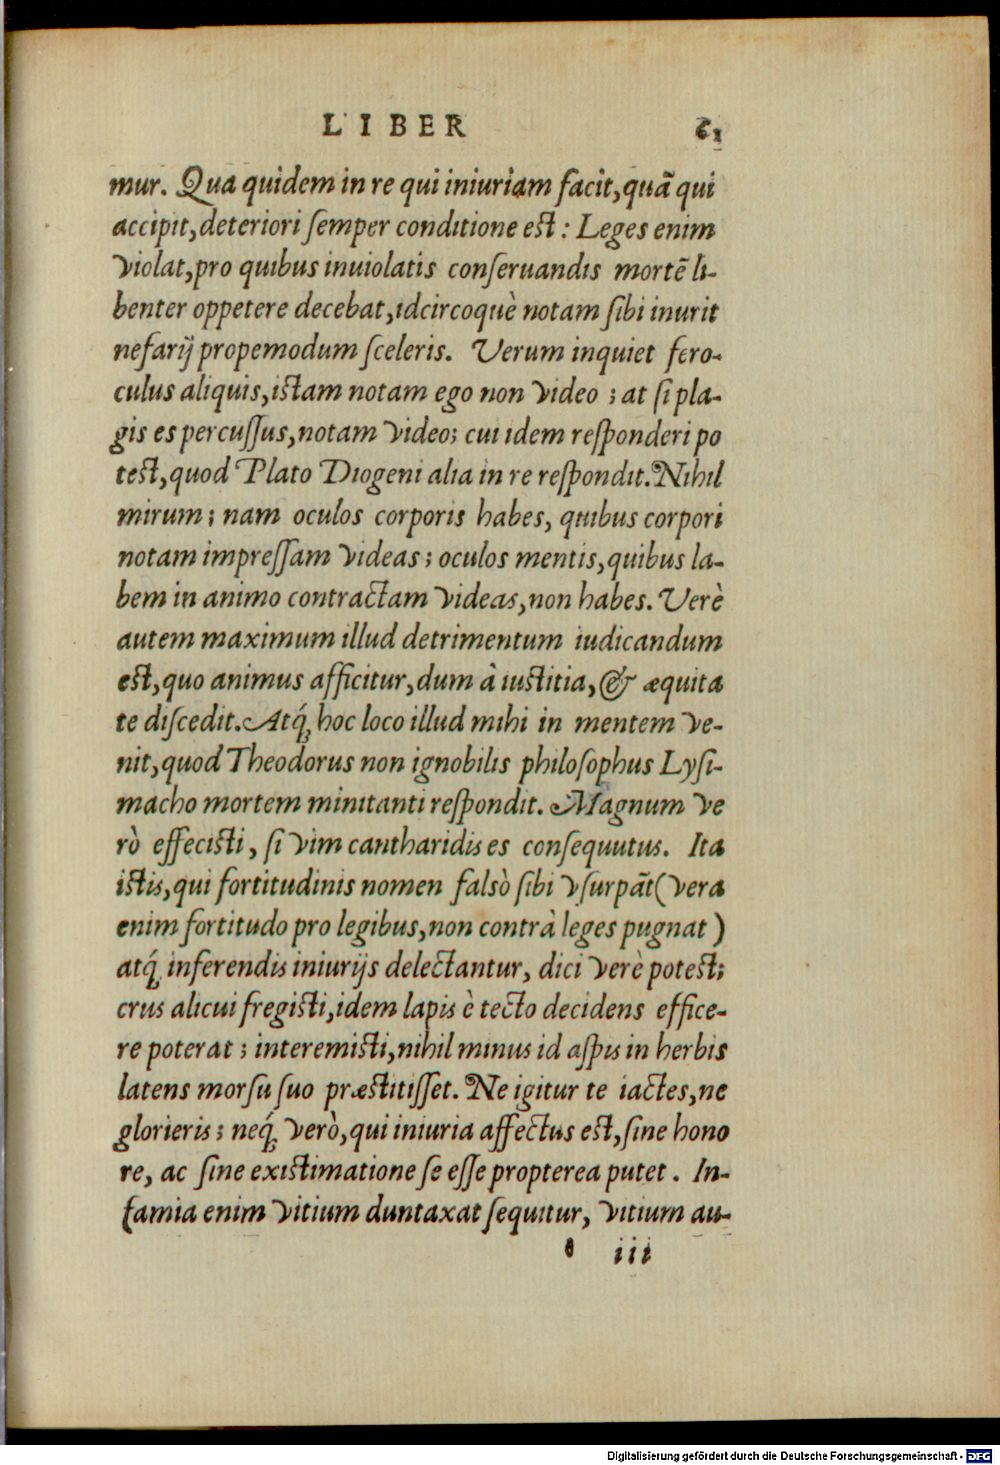 LIBER 61
mur. Qua quidem in re qui iniuriam facit, quā qui
accipit, deteriori ſemper conditione est: Leges enim
violat, pro quibus inuiolatis conſeruandis mortē li-
benter oppetere decebat, idcircoquè notam ſibi inurit
nefarij propemodum ſceleris. Verum inquiet fero-
culus aliquis, istam notam ego non video; at ſi pla-
gis es percuſſus, notam video; cui idem reſponderi po
test, quod Plato Diogeni alia in re reſpondit. Nihil
mirum; nam oculos corporis habes, quibus corpori
notam impreſſam videas; oculos mentis, quibus la-
bem in animo contractam videas, non habes. Verè
autem maximum illud detrimentum iudicandum
est, quo animus afficitur, dum à iustitia, & æquita
te diſcedit. Atq́; hoc loco illud mihi in mentem ve-
nit, quod Theodorus non ignobilis philoſophus Lyſi-
macho mortem minitanti reſpondit. Magnum ve
rò effecisti, ſi vim cantharidis es conſequutus. Ita
istis, qui fortitudinis nomen falsò ſibi vſurpāt (vera
enim fortitudo pro legibus, non contrà leges pugnat)
atq́; inferendis iniurijs delectantur, dici verè potest;
crus alicui fregisti, idem lapis è tecto decidens effice-
re poterat; interemisti, nihil minus id aſpis in herbis
latens morſu ſuo præstitiſſet. Ne igitur te iactes, ne
glorieris; neq́; verò, qui iniuria affectus est, ſine hono
re, ac ſine existimatione ſe eſſe propterea putet. In-
famia enim vitium duntaxat ſequitur, vitium au-
iii
Digitalisierung gefördert durch die Deutsche Forschungsgemeinschaft - DFG